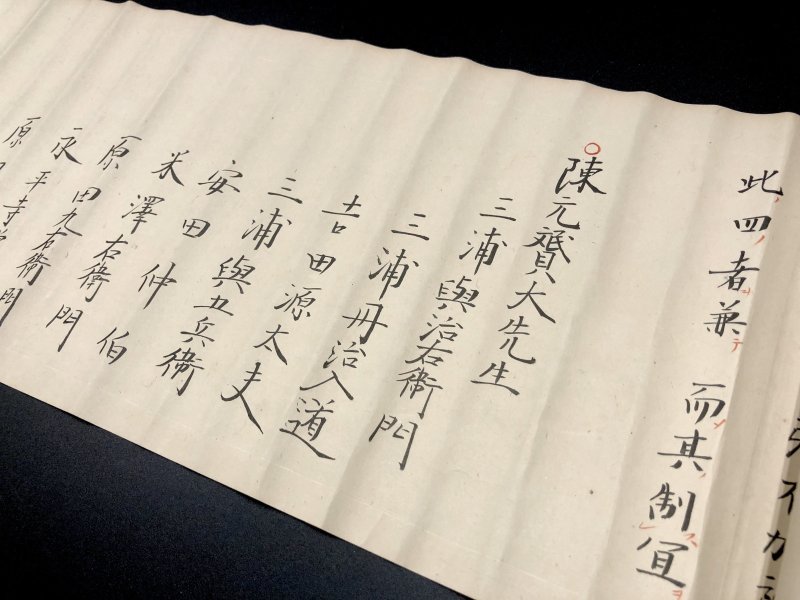 此ノ四ノ者ヲ兼テ而其ノ制スレ宜ヲ
陳元贇大先生
三浦與治右衛門
三浦丹治入道
吉田源太夫
三浦與五兵衛
安田仲伯
米澤右衛門
原田九右衛門
永平寺
原